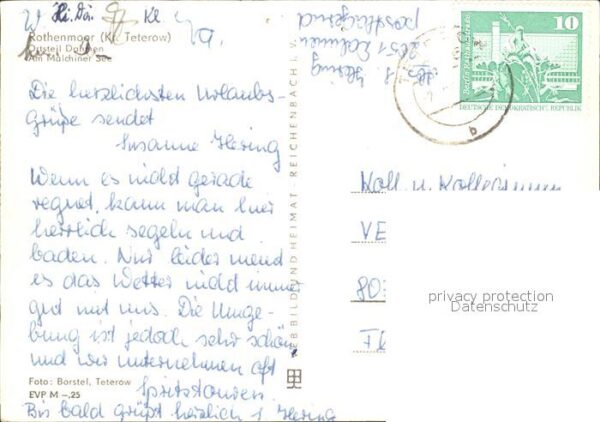 Rothenmoor (Kr. Teterow)
Ortsteil Dahmen
Am Malchiner See
Die herzlichsten Urlaubs-
grüße sendet
Susanne Hering
Wenn es nicht gerade
regnet, kann man hier
herrlich segeln und
baden. Nur leider meint
es das Wetter nicht immer
gut mit uns. Die Umge-
bung ist jedoch sehr schön
und wir unternehmen oft
Spritztouren.
Bis bald grüßt herzlich S. Hering
Foto: Borstel, Teterow
EVP M –,25
VEB BILD UND HEIMAT REICHENBACH I. V.
S. Hering
2051 Dahmen
postlagernd
10
DEUTSCHE DEMOKRATISCHE REPUBLIK
b
Koll. u. Kolleginnen
VE
80
privacy protection
Datenschutz